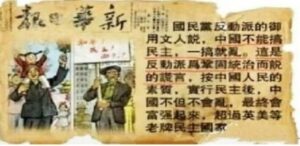 新華日報
國民黨反動派的御
用文人說，中國不能搞
民主，一搞就亂。這是
反動派爲鞏固統治而說
的謊言。按中國人民的
素質，實行民主後，中
國不但不會亂，最終會
富强起來，超過英美等
老牌民主國家